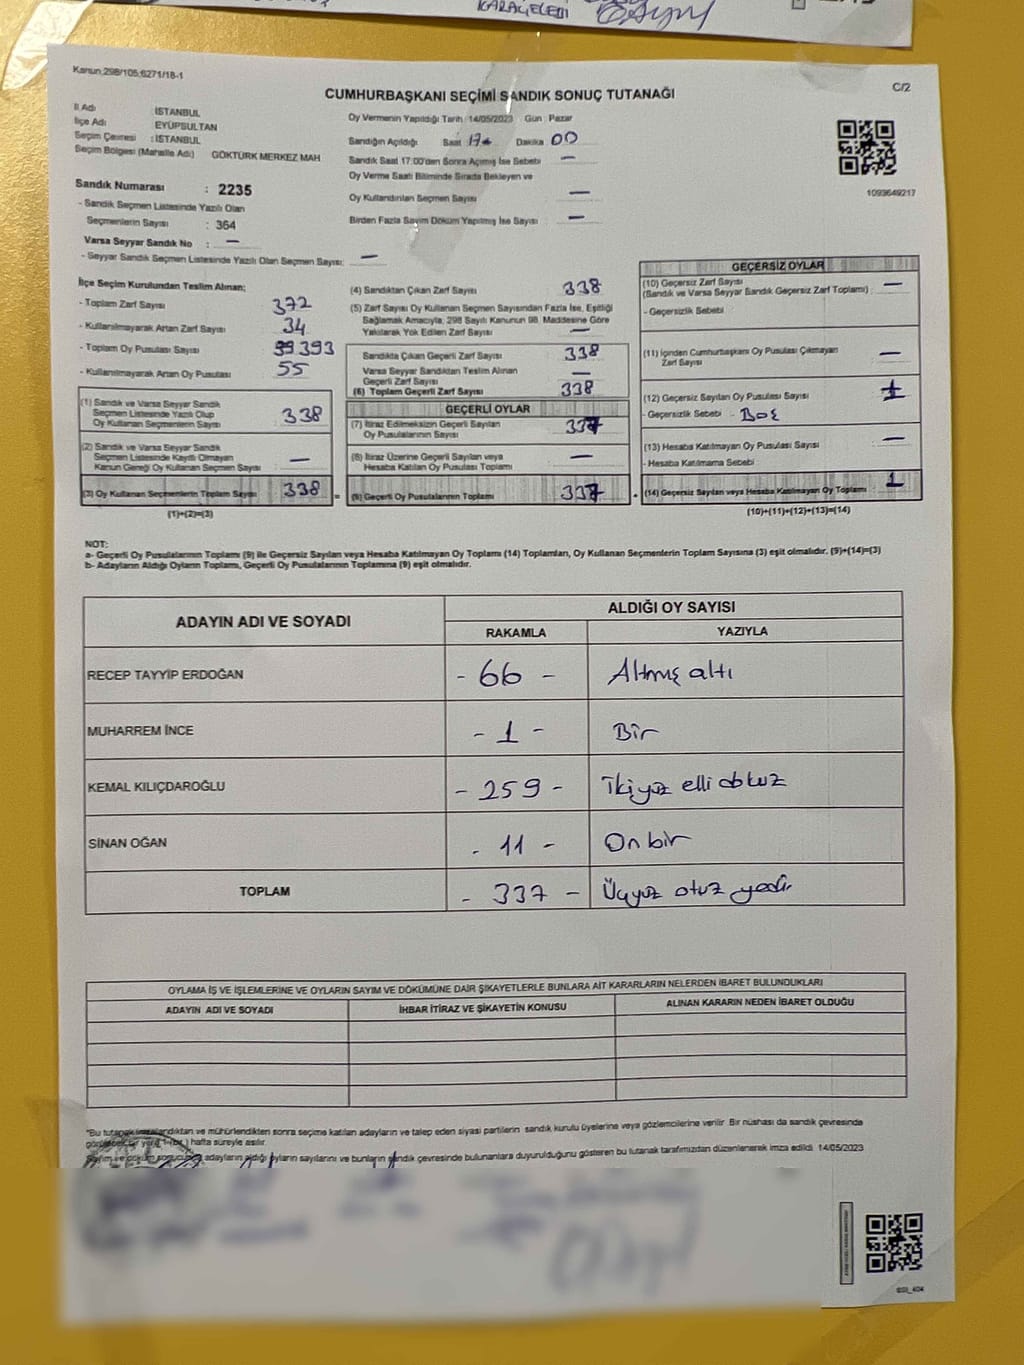 KARAÇELEBİ
Kanun;298/105;6271/18-1
C/2
CUMHURBAŞKANI SEÇİMİ SANDIK SONUÇ TUTANAĞI
İl Adı İSTANBUL
İlçe Adı EYÜPSULTAN
Seçim Çevresi : İSTANBUL
Seçim Bölgesi (Mahalle Adı) GÖKTÜRK MERKEZ MAH
Oy Vermenin Yapıldığı Tarih :14/05/2023 Gün : Pazar
Sandığın Açıldığı Saat 17 Dakika 00
Sandık Saat 17:00'den Sonra Açılmış İse Sebebi —
Oy Verme Saati Bitiminde Sırada Bekleyen ve
Oy Kullandırılan Seçmen Sayısı —
Birden Fazla Sayım Döküm Yapılmış İse Sayısı —
1093649217
Sandık Numarası : 2235
- Sandık Seçmen Listesinde Yazılı Olan
Seçmenlerin Sayısı : 364
Varsa Seyyar Sandık No : —
- Seyyar Sandık Seçmen Listesinde Yazılı Olan Seçmen Sayısı: —
İlçe Seçim Kurulundan Teslim Alınan;
- Toplam Zarf Sayısı 372
- Kullanılmayarak Artan Zarf Sayısı 34
- Toplam Oy Pusulası Sayısı 393
- Kullanılmayarak Artan Oy Pusulası 55
(1) Sandık ve Varsa Seyyar Sandık
Seçmen Listesinde Yazılı Olup
Oy Kullanan Seçmenlerin Sayısı : 338
(2) Sandık ve Varsa Seyyar Sandık
Seçmen Listesinde Kayıtlı Olmayan
Kanun Gereği Oy Kullanan Seçmen Sayısı : —
(3) Oy Kullanan Seçmenlerin Toplam Sayısı : 338
(1)+(2)=(3)
(4) Sandıktan Çıkan Zarf Sayısı 338
(5) Zarf Sayısı Oy Kullanan Seçmen Sayısından Fazla İse, Eşitliği
Sağlamak Amacıyla, 298 Sayılı Kanunun 98. Maddesine Göre
Yakılarak Yok Edilen Zarf Sayısı —
Sandıkta Çıkan Geçerli Zarf Sayısı 338
Varsa Seyyar Sandıktan Teslim Alınan
Geçerli Zarf Sayısı —
(6) Toplam Geçerli Zarf Sayısı 338
GEÇERLİ OYLAR
(7) İtiraz Edilmeksizin Geçerli Sayılan
Oy Pusulalarının Sayısı : 337
(8) İtiraz Üzerine Geçerli Sayılan veya
Hesaba Katılan Oy Pusulası Toplamı : —
(9) Geçerli Oy Pusulalarının Toplamı : 337
GEÇERSİZ OYLAR
(10) Geçersiz Zarf Sayısı
(Sandık ve Varsa Seyyar Sandık Geçersiz Zarf Toplamı) : —
- Geçersizlik Sebebi
(11) İçinden Cumhurbaşkanı Oy Pusulası Çıkmayan
Zarf Sayısı —
(12) Geçersiz Sayılan Oy Pusulası Sayısı 1
- Geçersizlik Sebebi - Boş
(13) Hesaba Katılmayan Oy Pusulası Sayısı —
- Hesaba Katılmama Sebebi
(14) Geçersiz Sayılan veya Hesaba Katılmayan Oy Toplamı : 1
(10)+(11)+(12)+(13)=(14)
NOT:
a- Geçerli Oy Pusulalarının Toplamı (9) ile Geçersiz Sayılan veya Hesaba Katılmayan Oy Toplamı (14) Toplamları, Oy Kullanan Seçmenlerin Toplam Sayısına (3) eşit olmalıdır. (9)+(14)=(3)
b- Adayların Aldığı Oyların Toplamı, Geçerli Oy Pusulalarının Toplamına (9) eşit olmalıdır.
ADAYIN ADI VE SOYADI ALDIĞI OY SAYISI
RAKAMLA YAZIYLA
RECEP TAYYİP ERDOĞAN - 66 - Altmış altı
MUHARREM İNCE - 1 - Bir
KEMAL KILIÇDAROĞLU - 259 - İkiyüz elli dokuz
SİNAN OĞAN - 11 - On bir
TOPLAM - 337 - Üçyüz otuz yedi
OYLAMA İŞ VE İŞLEMLERİNE VE OYLARIN SAYIM VE DÖKÜMÜNE DAİR ŞİKAYETLERLE BUNLARA AİT KARARLARIN NELERDEN İBARET BULUNDUKLARI
ADAYIN ADI VE SOYADI İHBAR İTİRAZ VE ŞİKAYETİN KONUSU ALINAN KARARIN NEDEN İBARET OLDUĞU
*Bu tutanak imzalandıktan ve mühürlendikten sonra seçime katılan adayların ve talep eden siyasi partilerin sandık kurulu üyelerine veya gözlemcilerine verilir. Bir nüshası da sandık çevresinde
görülecek bir yere 1 (bir) hafta süreyle asılır.
Sayım ve döküm sonucunda adayların aldığı oyların sayılarını ve bunların sandık çevresinde bulunanlara duyurulduğunu gösteren bu tutanak tarafımızdan düzenlenerek imza edildi. 14/05/2023